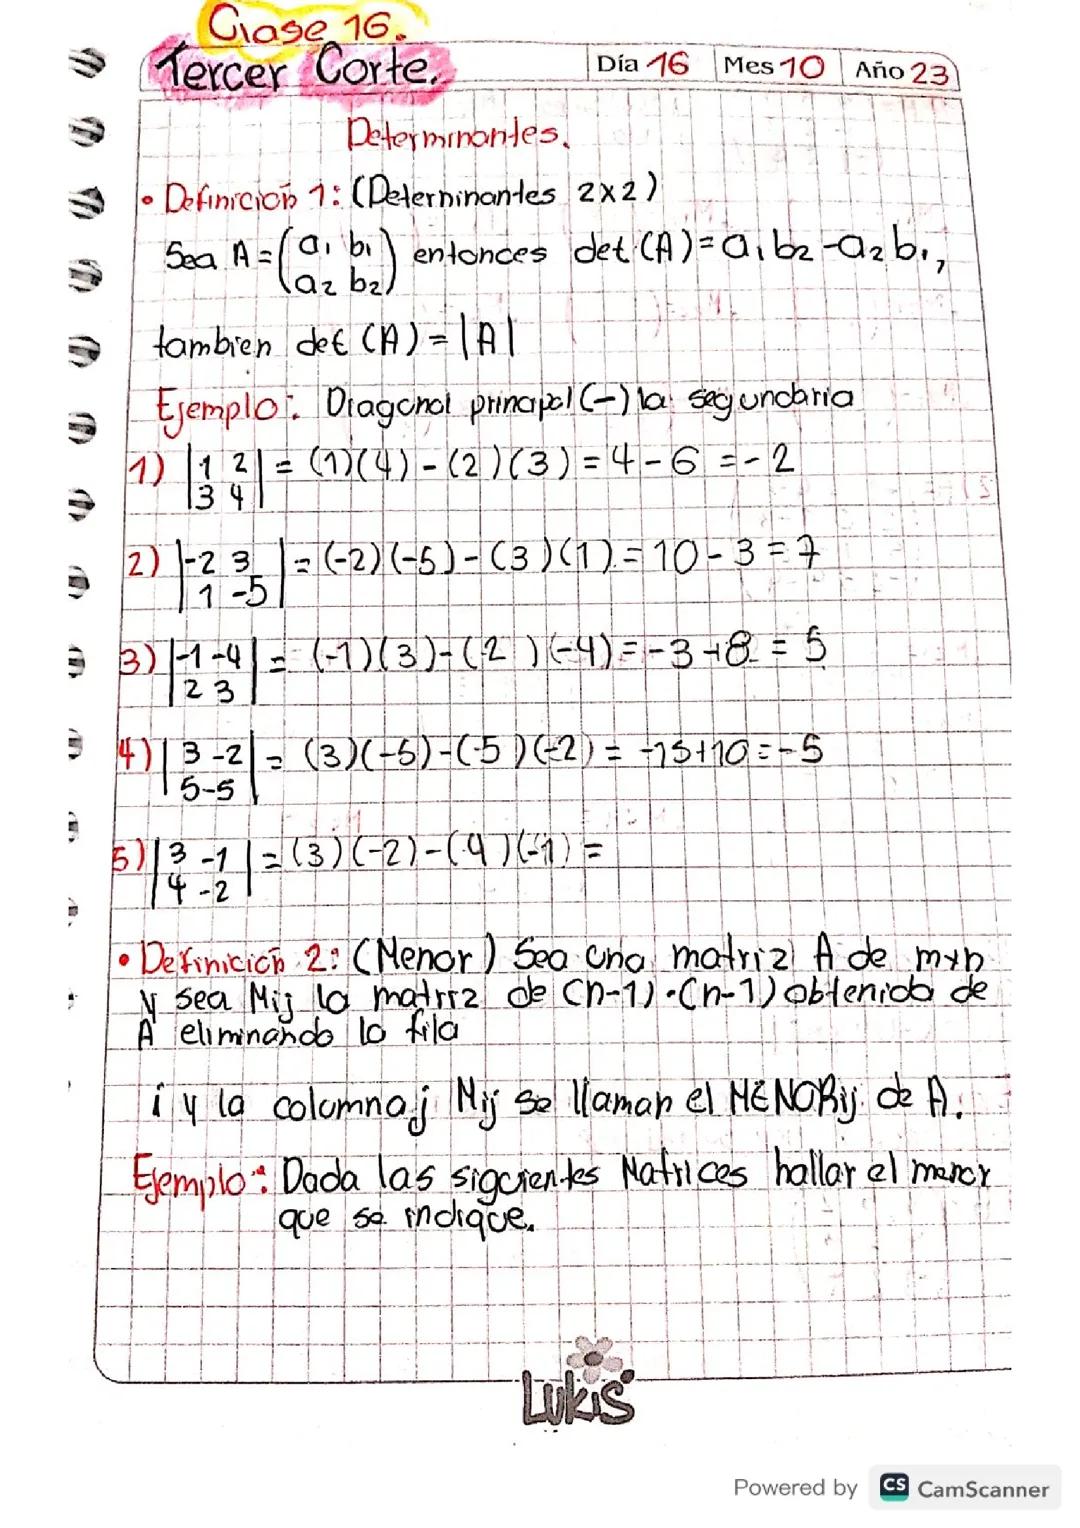 Clase 16.
Tercer Corte.
Día 16 Mes 10 Año 23
Determinantes.
• Definición 1: (Deterninantes 2x2)
Sea A = (a₁ b₁ entonces det (A) = a₁b₂ - a₂b₁,
a₂ b₂)
tambien det (A) = |A|
Ejemplo: Diagonal principal (-) la segundaria
1) |1 2| = (1)(4) - (2)(3) = 4 - 6 = - 2
3 4
2) |-2 3| = (-2)(-5) - (3)(1) = 10 - 3 = 7
1 -5
3) |-1 -4| = (-1)(3) - (2)(-4) = -3 +8 = 5
2 3
4) |3 -2| = (3)(-5) - (5)(-2) = -15+10 = -5
5 -5
5) |3 -1| = (3)(-2) - (4)(-1) =
4 -2
• Definición 2: (Menor) Sea una matriz A de m×n
y sea Mij la matriz de (n-1)·(n-1) obtenida de
A eliminando la fila
i y la columna j Mij se llaman el MENORij de A.
Ejemplo: Dada las siguientes Matrices hallar el menor
que se indique.
LUKIS
Powered by CS CamScanner